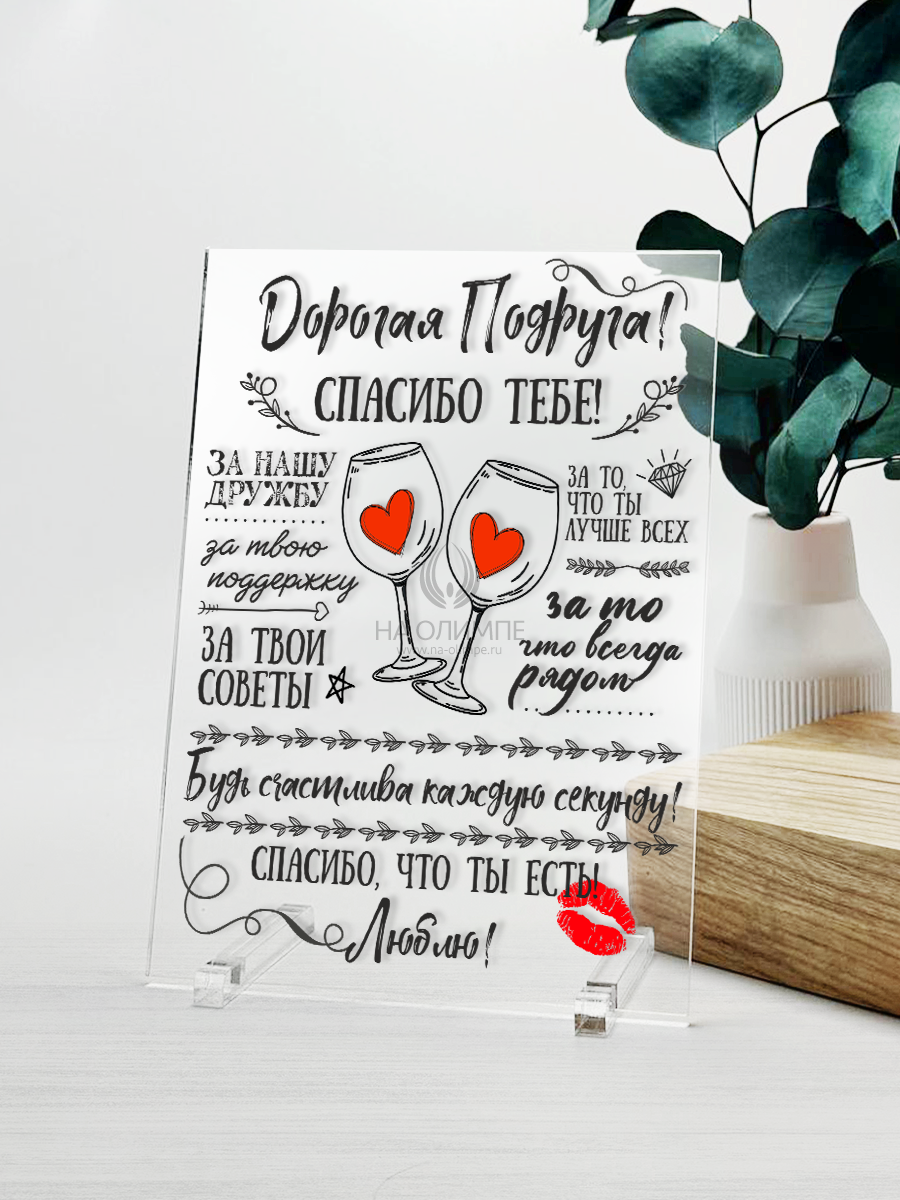 Дорогая Подруга!
СПАСИБО ТЕБЕ!
ЗА НАШУ
ДРУЖБУ
за твою
поддержку
ЗА ТВОИ
СОВЕТЫ
ЗА ТО,
ЧТО ТЫ
ЛУЧШЕ ВСЕХ
за то
что всегда
рядом
НА ОЛИМПЕ
www.na-olimpe.ru
Будь счастлива каждую секунду!
СПАСИБО, ЧТО ТЫ ЕСТЬ!
Люблю!